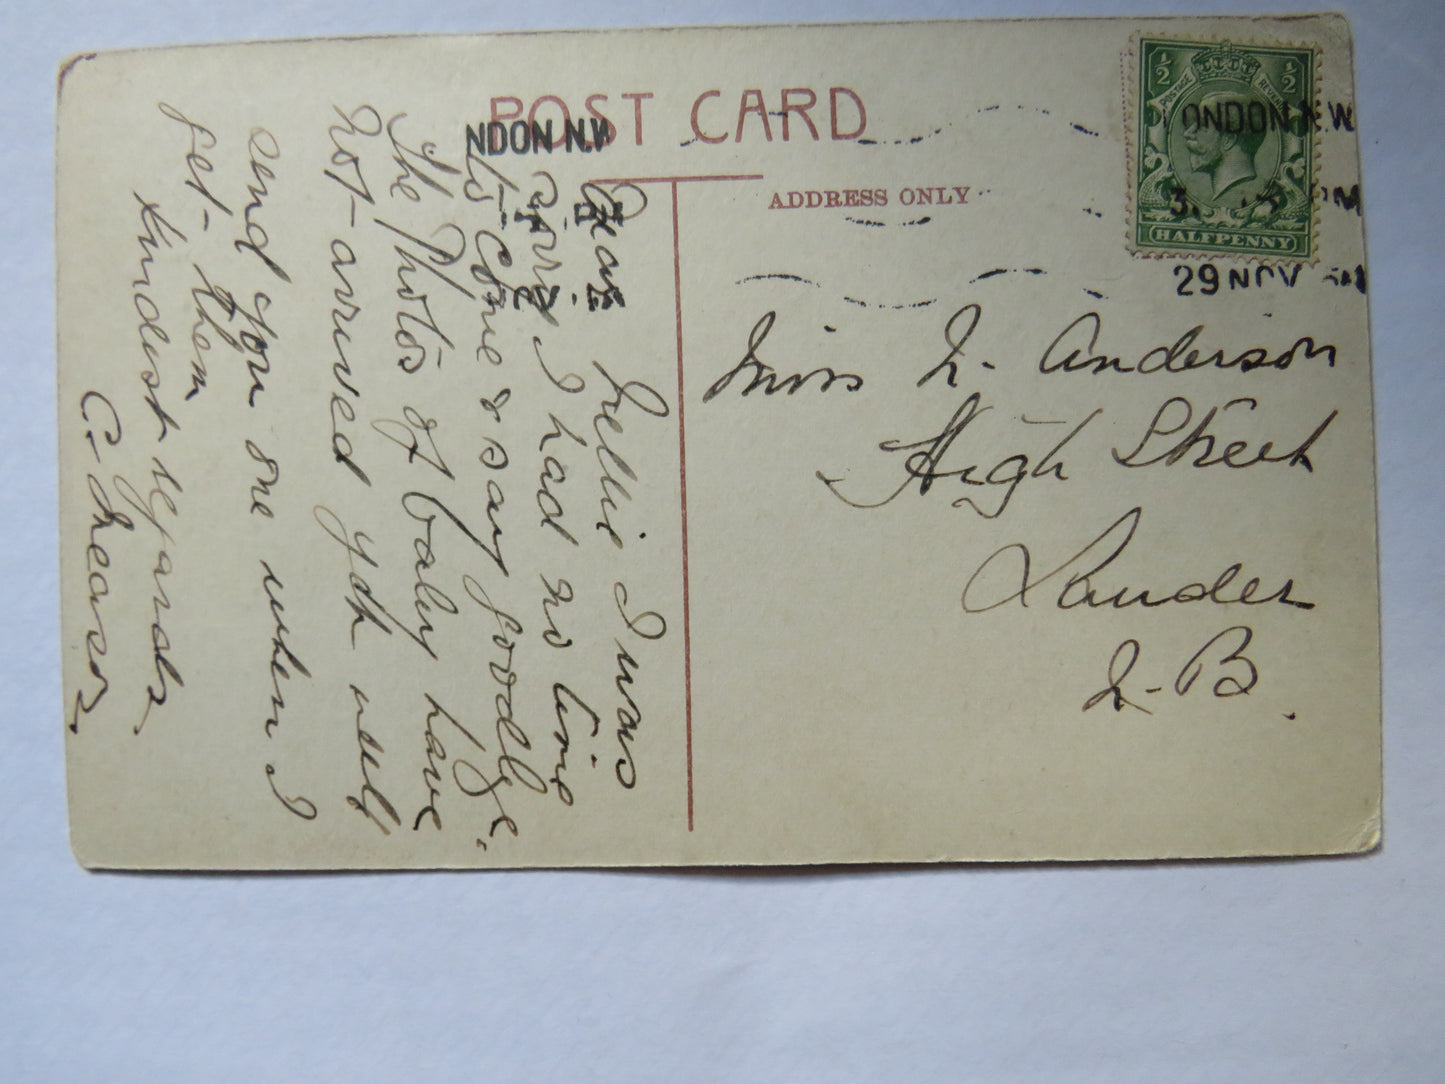 POST CARD
ADDRESS ONLY
½ ½
POSTAGE REVENUE
HALFPENNY
LONDON N.W
3. PM
29 NOV
NDON N.W
Miss N. Anderson
High Street
Lauder
N. B.
Dear Nellie I was
sorry I had no time
to come & say goodbye.
The Photos of baby have
not arrived yet will
send you one when I
get them
Kindest regards
C.